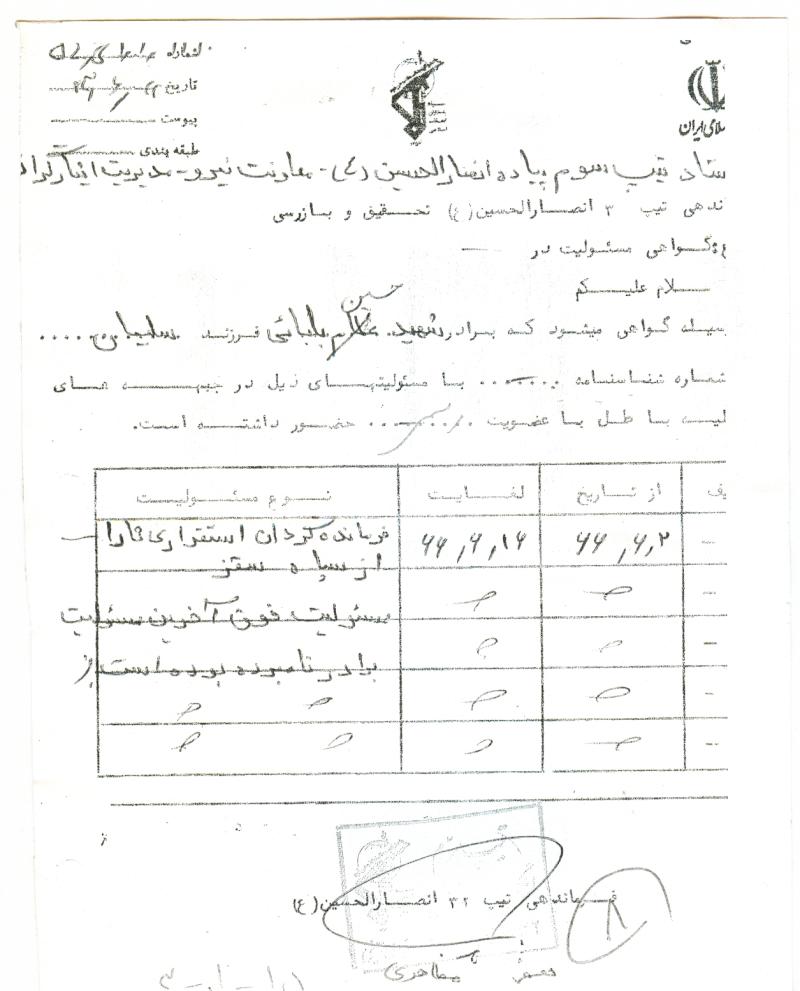 شماره
تاریخ
پیوست
طبقه بندی
لامی ایران
ستاد تیپ سوم پیاده انصارالحسین (ع) - معاونت نیرو - مدیریت
ندهی تیپ ۳ انصارالحسین (ع) تحقیق و بازرسی
گواهی مسئولیت در
سلام علیکم
حسین
سیله گواهی میشود که برادر شهید بابائی فرزند سلیمان
شماره شناسنامه با مسئولیتهای ذیل در جبهه های
با عضویت رسمی حضور داشته است.
یف از تاریخ لغایت نوع مسئولیت
۶۶,۶,۲ ۶۶,۶,۱۶ فرمانده گردان استقراری
از سپاه سقز
مسئولیت فوق آخرین مسئولیت
برادر نامبرده بوده است
فرماندهی تیپ ۳۲ انصارالحسین (ع)
۸